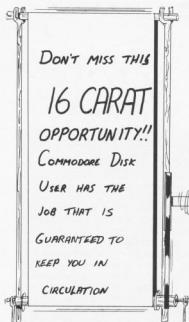 DON'T MISS THIS
16 CARAT
OPPORTUNITY!!
COMMODORE DISK
USER HAS THE
JOB THAT IS
GUARANTEED TO
KEEP YOU IN
CIRCULATION